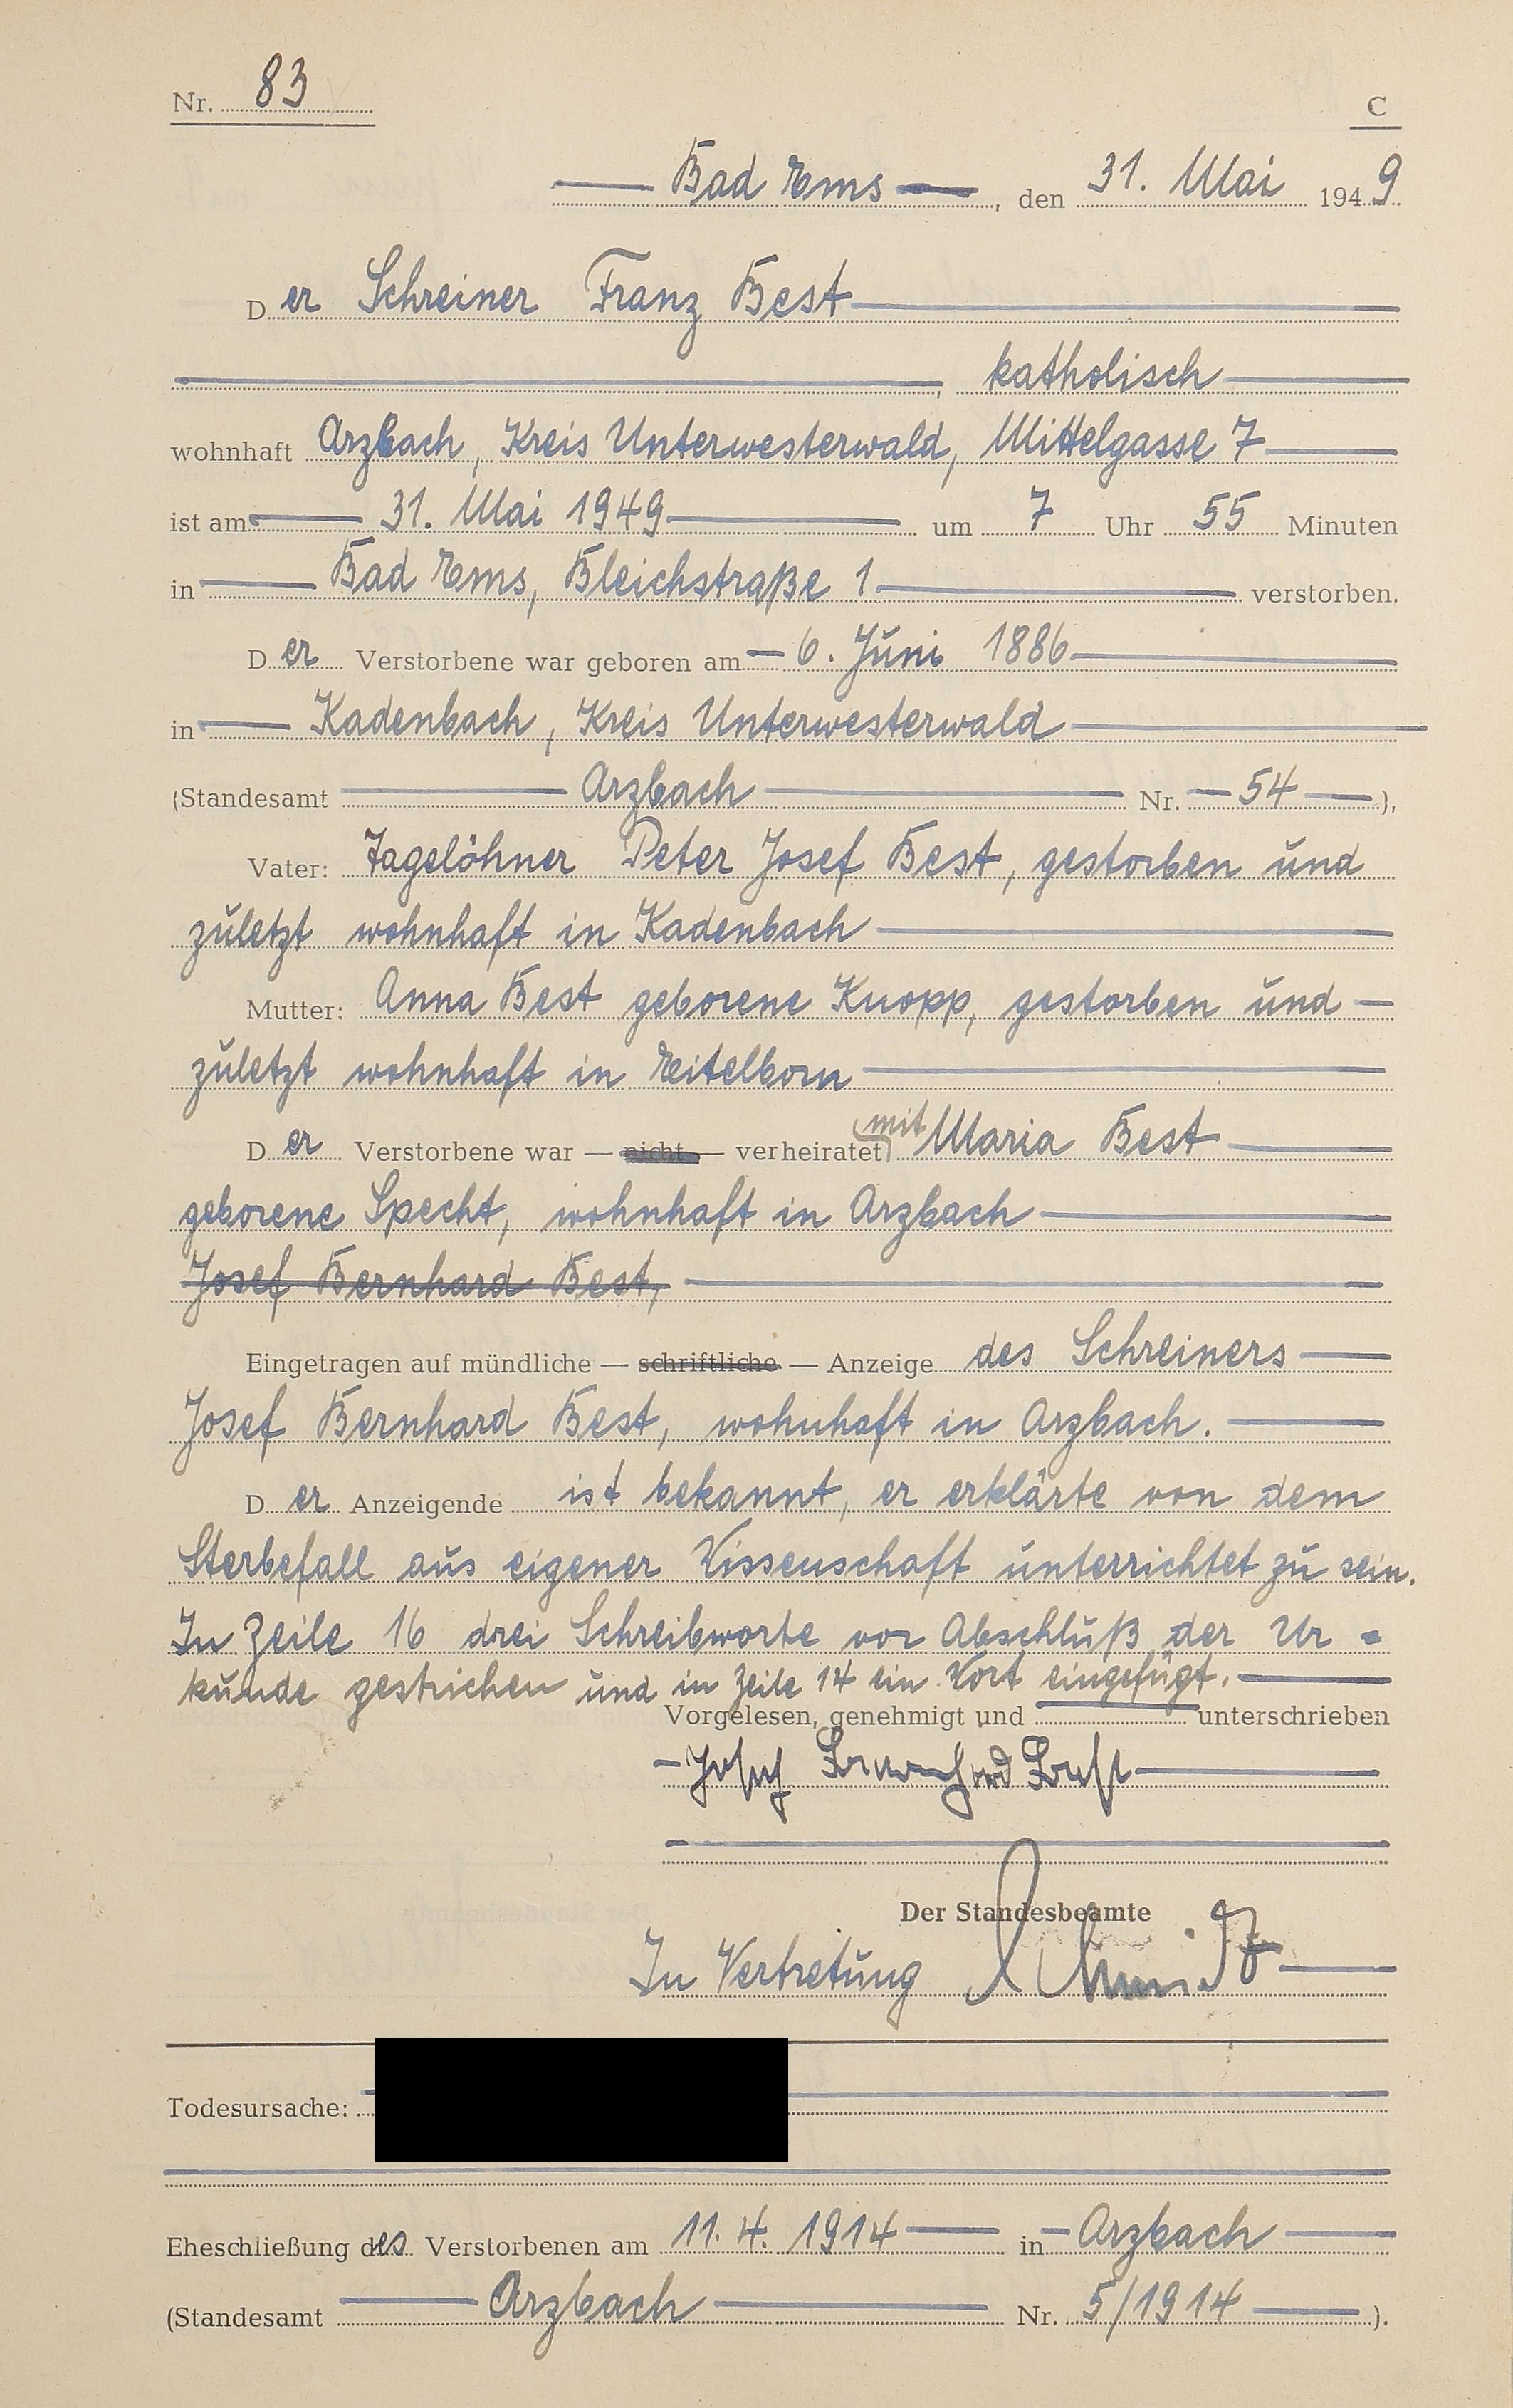 Nr. 83
C
Bad Ems, den 31. Mai 1949
Der Schreiner Franz Best
, katholisch
wohnhaft Arzbach, Kreis Unterwesterwald, Mittelgasse 7
ist am 31. Mai 1949 um 7 Uhr 55 Minuten
in Bad Ems, Bleichstraße 1 verstorben.
Der Verstorbene war geboren am 6. Juni 1886
in Kadenbach, Kreis Unterwesterwald
(Standesamt Arzbach Nr. 54),
Vater: Tagelöhner Peter Josef Best, gestorben und
zuletzt wohnhaft in Kadenbach
Mutter: Anna Best geborene Knopp, gestorben und
zuletzt wohnhaft in Eitelborn
Der Verstorbene war — nicht — verheiratet mit Maria Best
geborene Specht, wohnhaft in Arzbach
Josef Bernhard Best,
Eingetragen auf mündliche — schriftliche — Anzeige des Schreiners
Josef Bernhard Best, wohnhaft in Arzbach.
Der Anzeigende ist bekannt, er erklärte von dem
Sterbefall aus eigener Wissenschaft unterrichtet zu sein.
In Zeile 16 drei Schreibworte vor Abschluß der Ur=
kunde gestrichen und in Zeile 14 ein Wort eingefügt.
Vorgelesen, genehmigt und unterschrieben
Josef Bernhard Best
Der Standesbeamte
In Vertretung Schmidt
Todesursache:
Eheschließung des Verstorbenen am 11.4.1914 in Arzbach
(Standesamt Arzbach Nr. 5/1914).